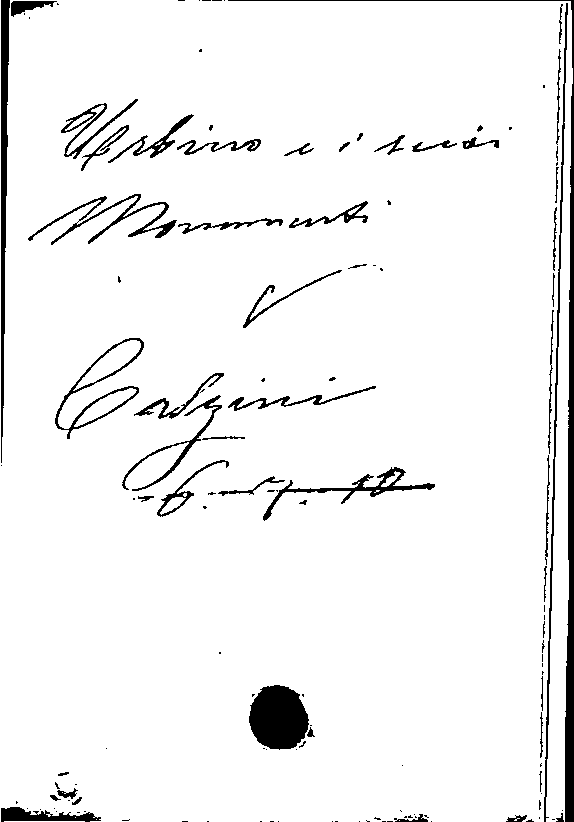 Urbino e i suoi
Monumenti
Calzini